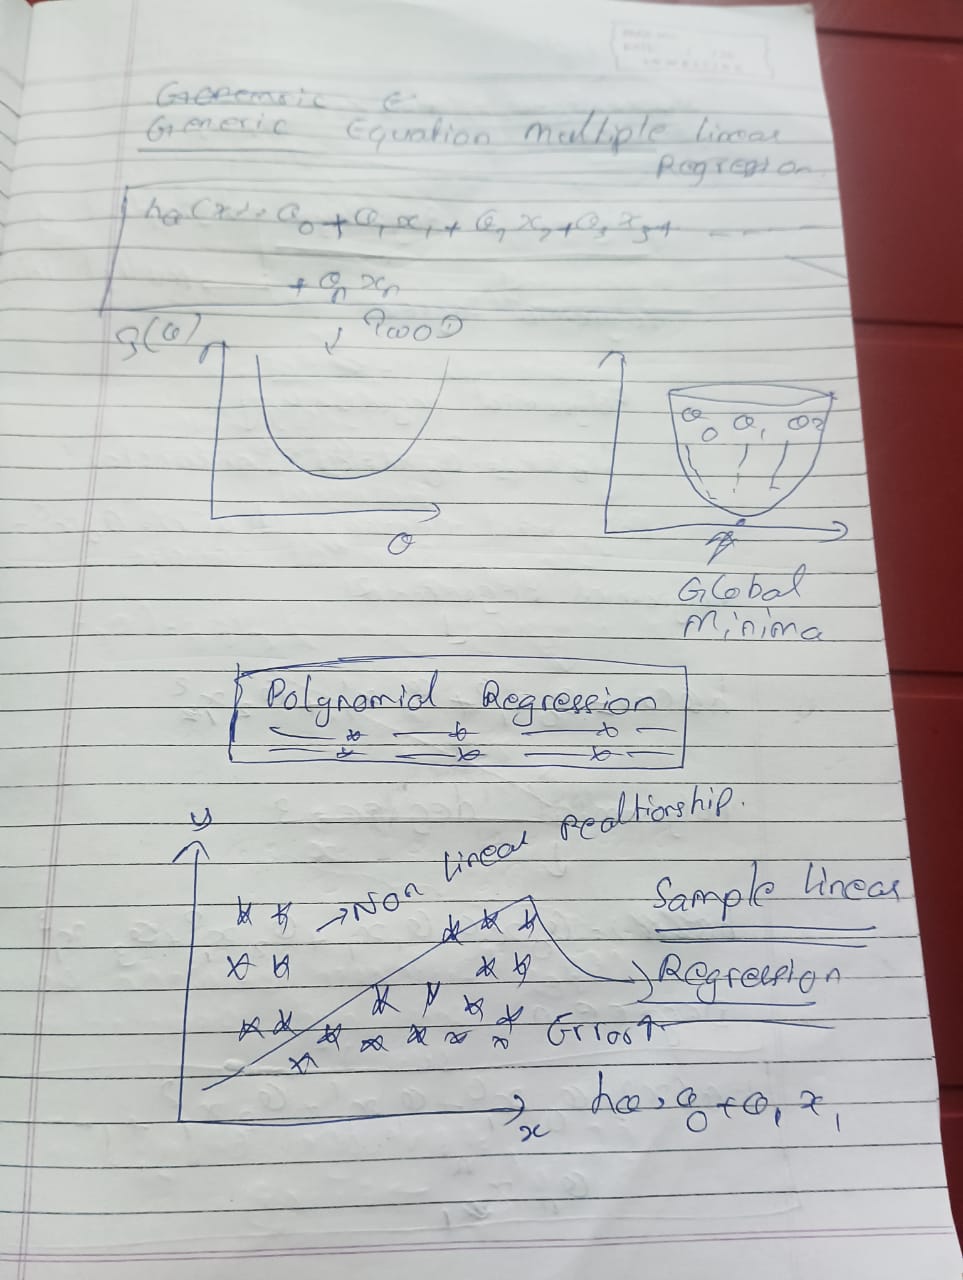 Generic
Generic Equation Multiple linear
Regression
hθ(x) = θ0 + θ1x1 + θ2x2 + θ3x3 + -----
+ θn xn
J(θ)
θ
θ0 θ1 θ2
Global
Minima
Polynomial Regression
y
Non lineal Realtionship.
Sample linear
Regression
Error↑
x
hθ = θ0 + θ1 x1